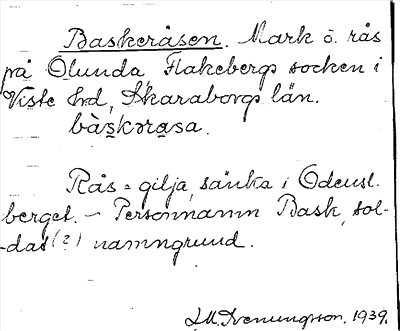 Baskeråsen. Mark o. rås
på Ölunda Flakebergs socken i
Viste hd, Skaraborgs län.
bàskərasa.
Rås = gilja, sänka i
berget. - Personnamn Bask, sol-
-dat (?) namngrund.
1939.